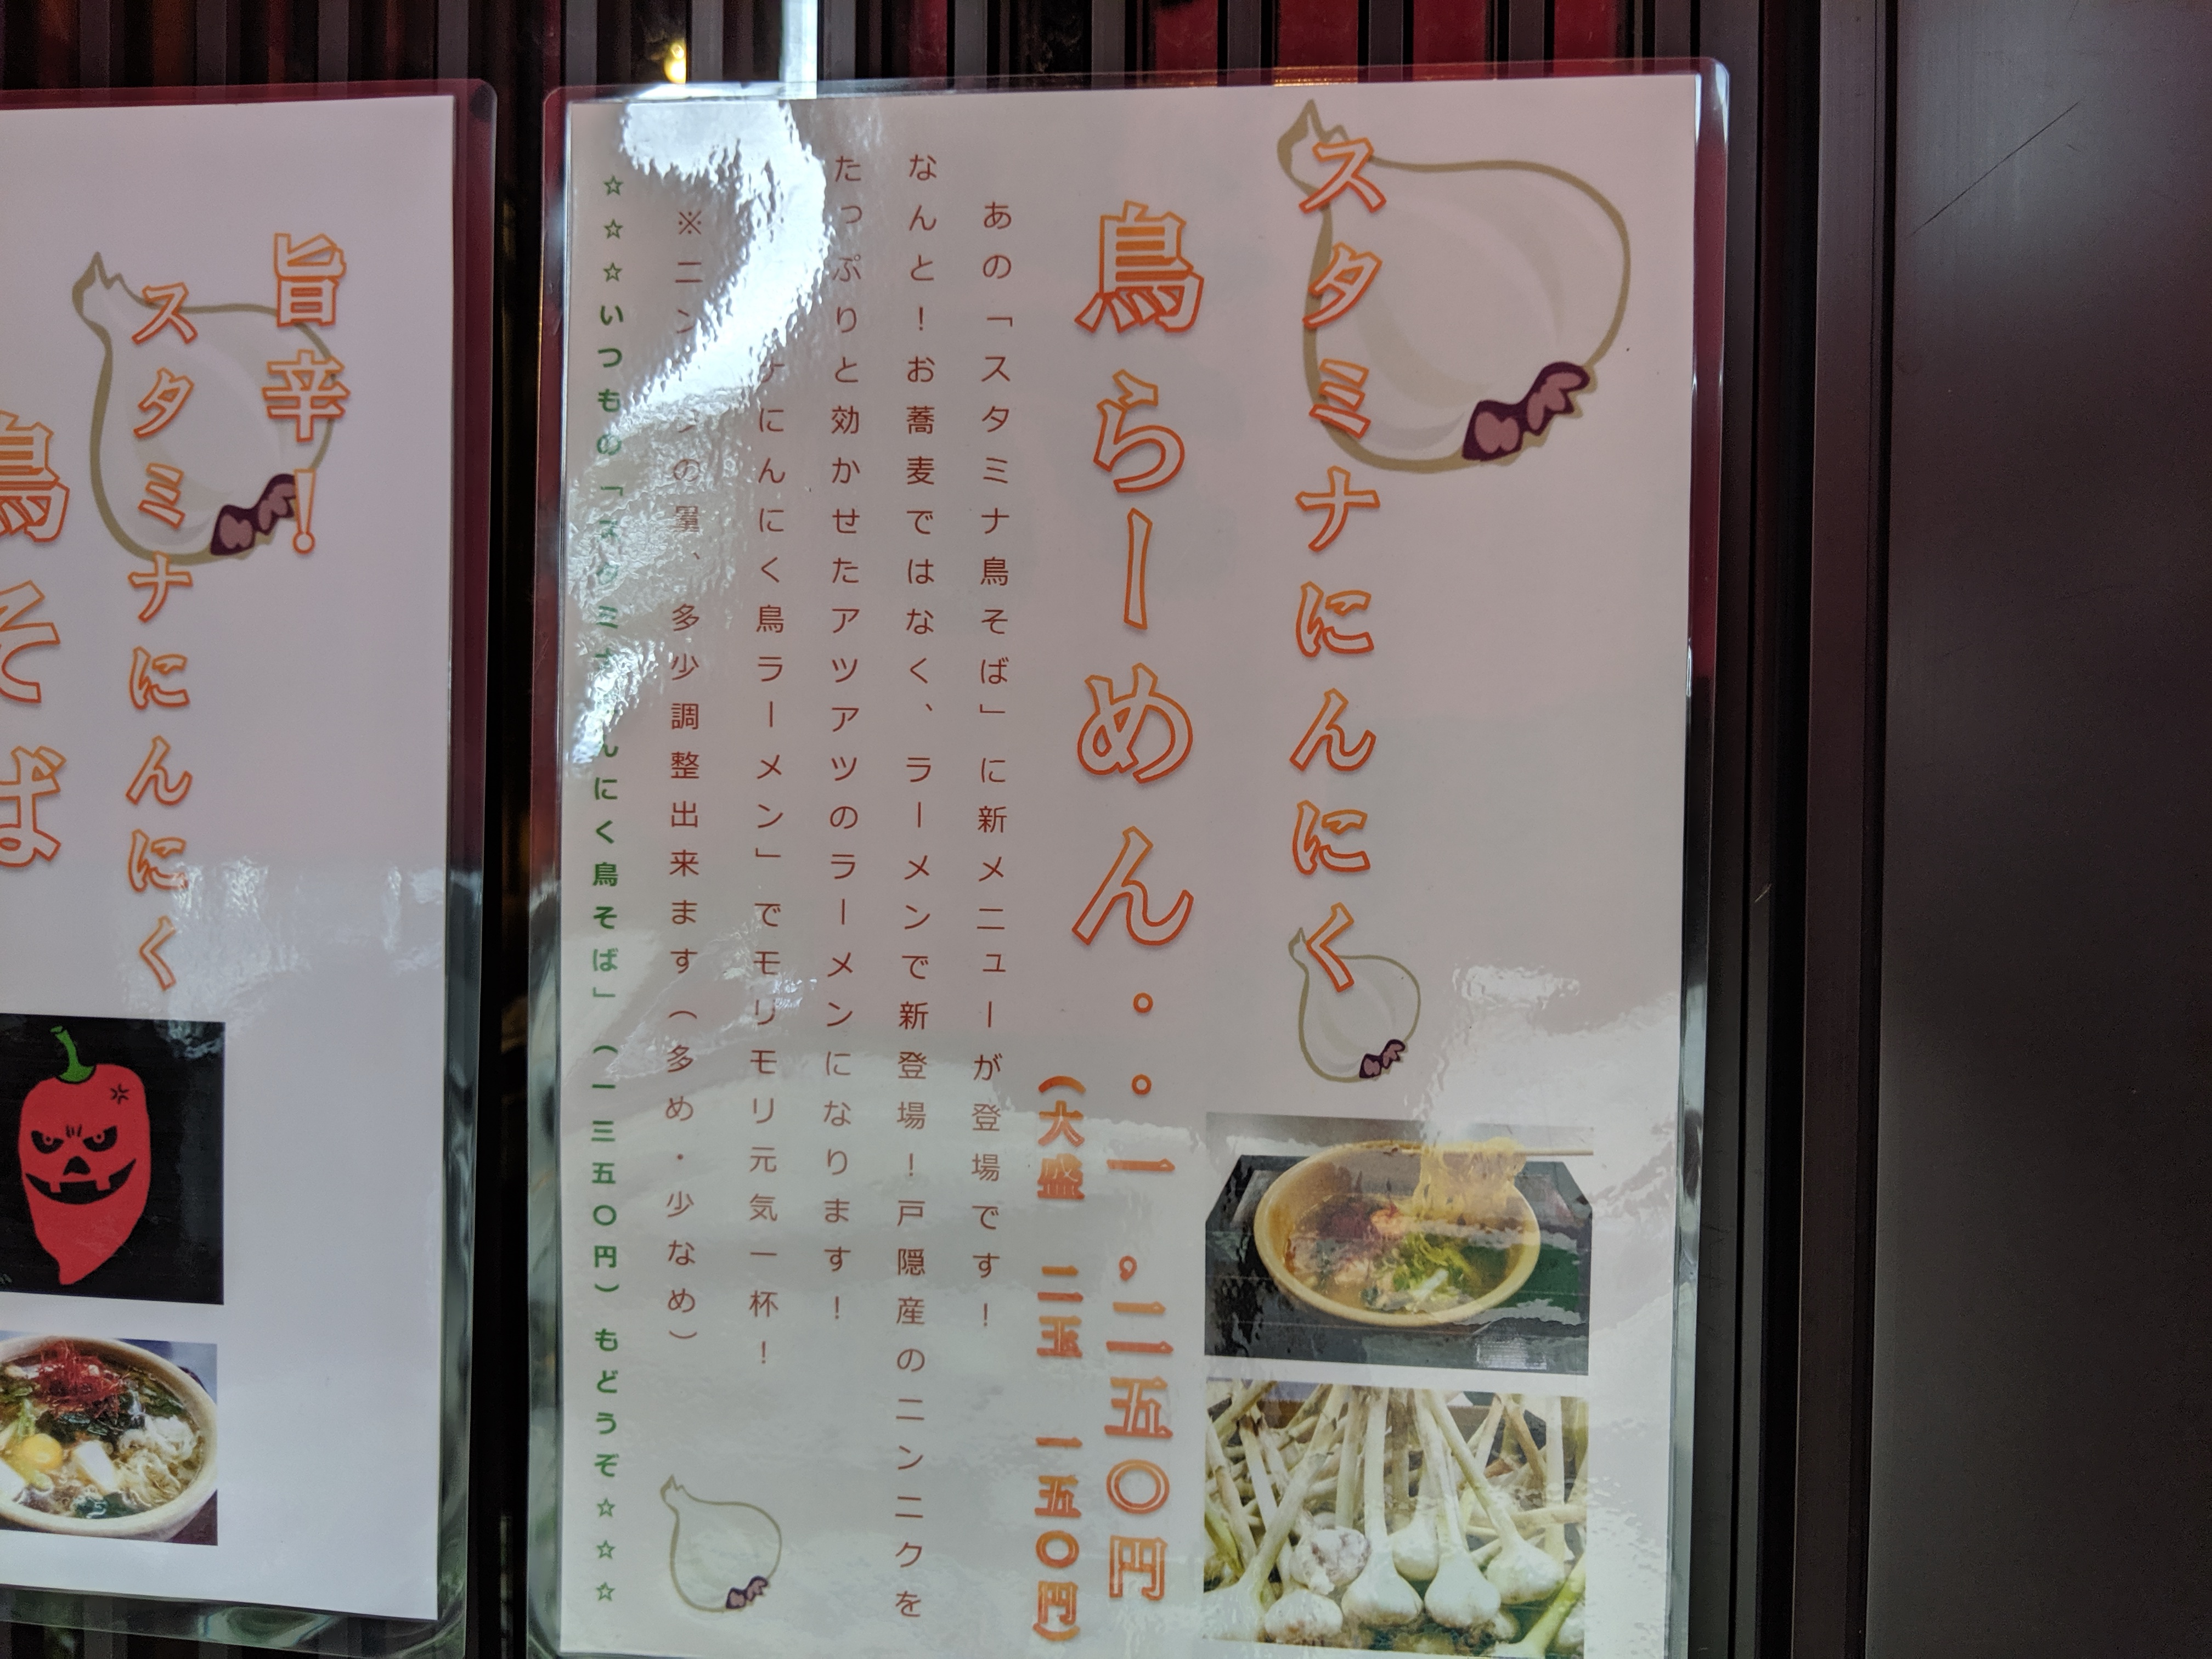 スタミナにんにく
鳥らーめん。。一。二五〇円
(大盛 二玉 一五〇円)
あの「スタミナ鳥そば」に新メニューが登場です!
なんと!お蕎麦ではなく、ラーメンで新登場!戸隠産のニンニクを
たっぷりと効かせたアツアツのラーメンになります!
にんにく鳥ラーメン」でモリモリ元気一杯!
※ニンニクの量、多少調整出来ます(多め・少なめ)
☆☆☆いつもの「スタミナにんにく鳥そば」(一三五〇円)もどうぞ☆☆☆
旨辛!
スタミナにんにく
鳥そば